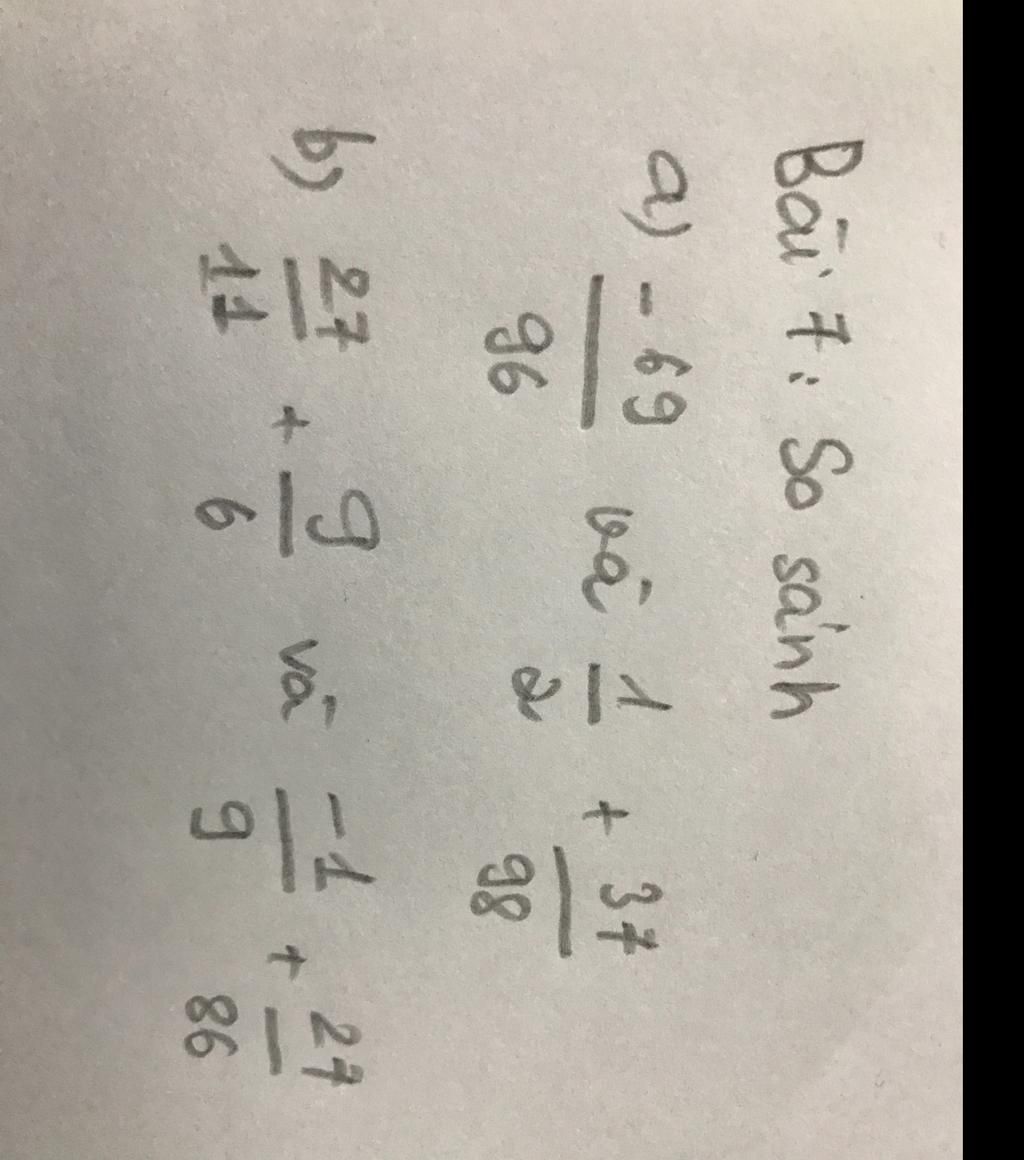 Bài 7: So sánh
a) -69/96 và 1/2 + 37/98
b) 27/11 + 9/6 và -1/9 + 27/86